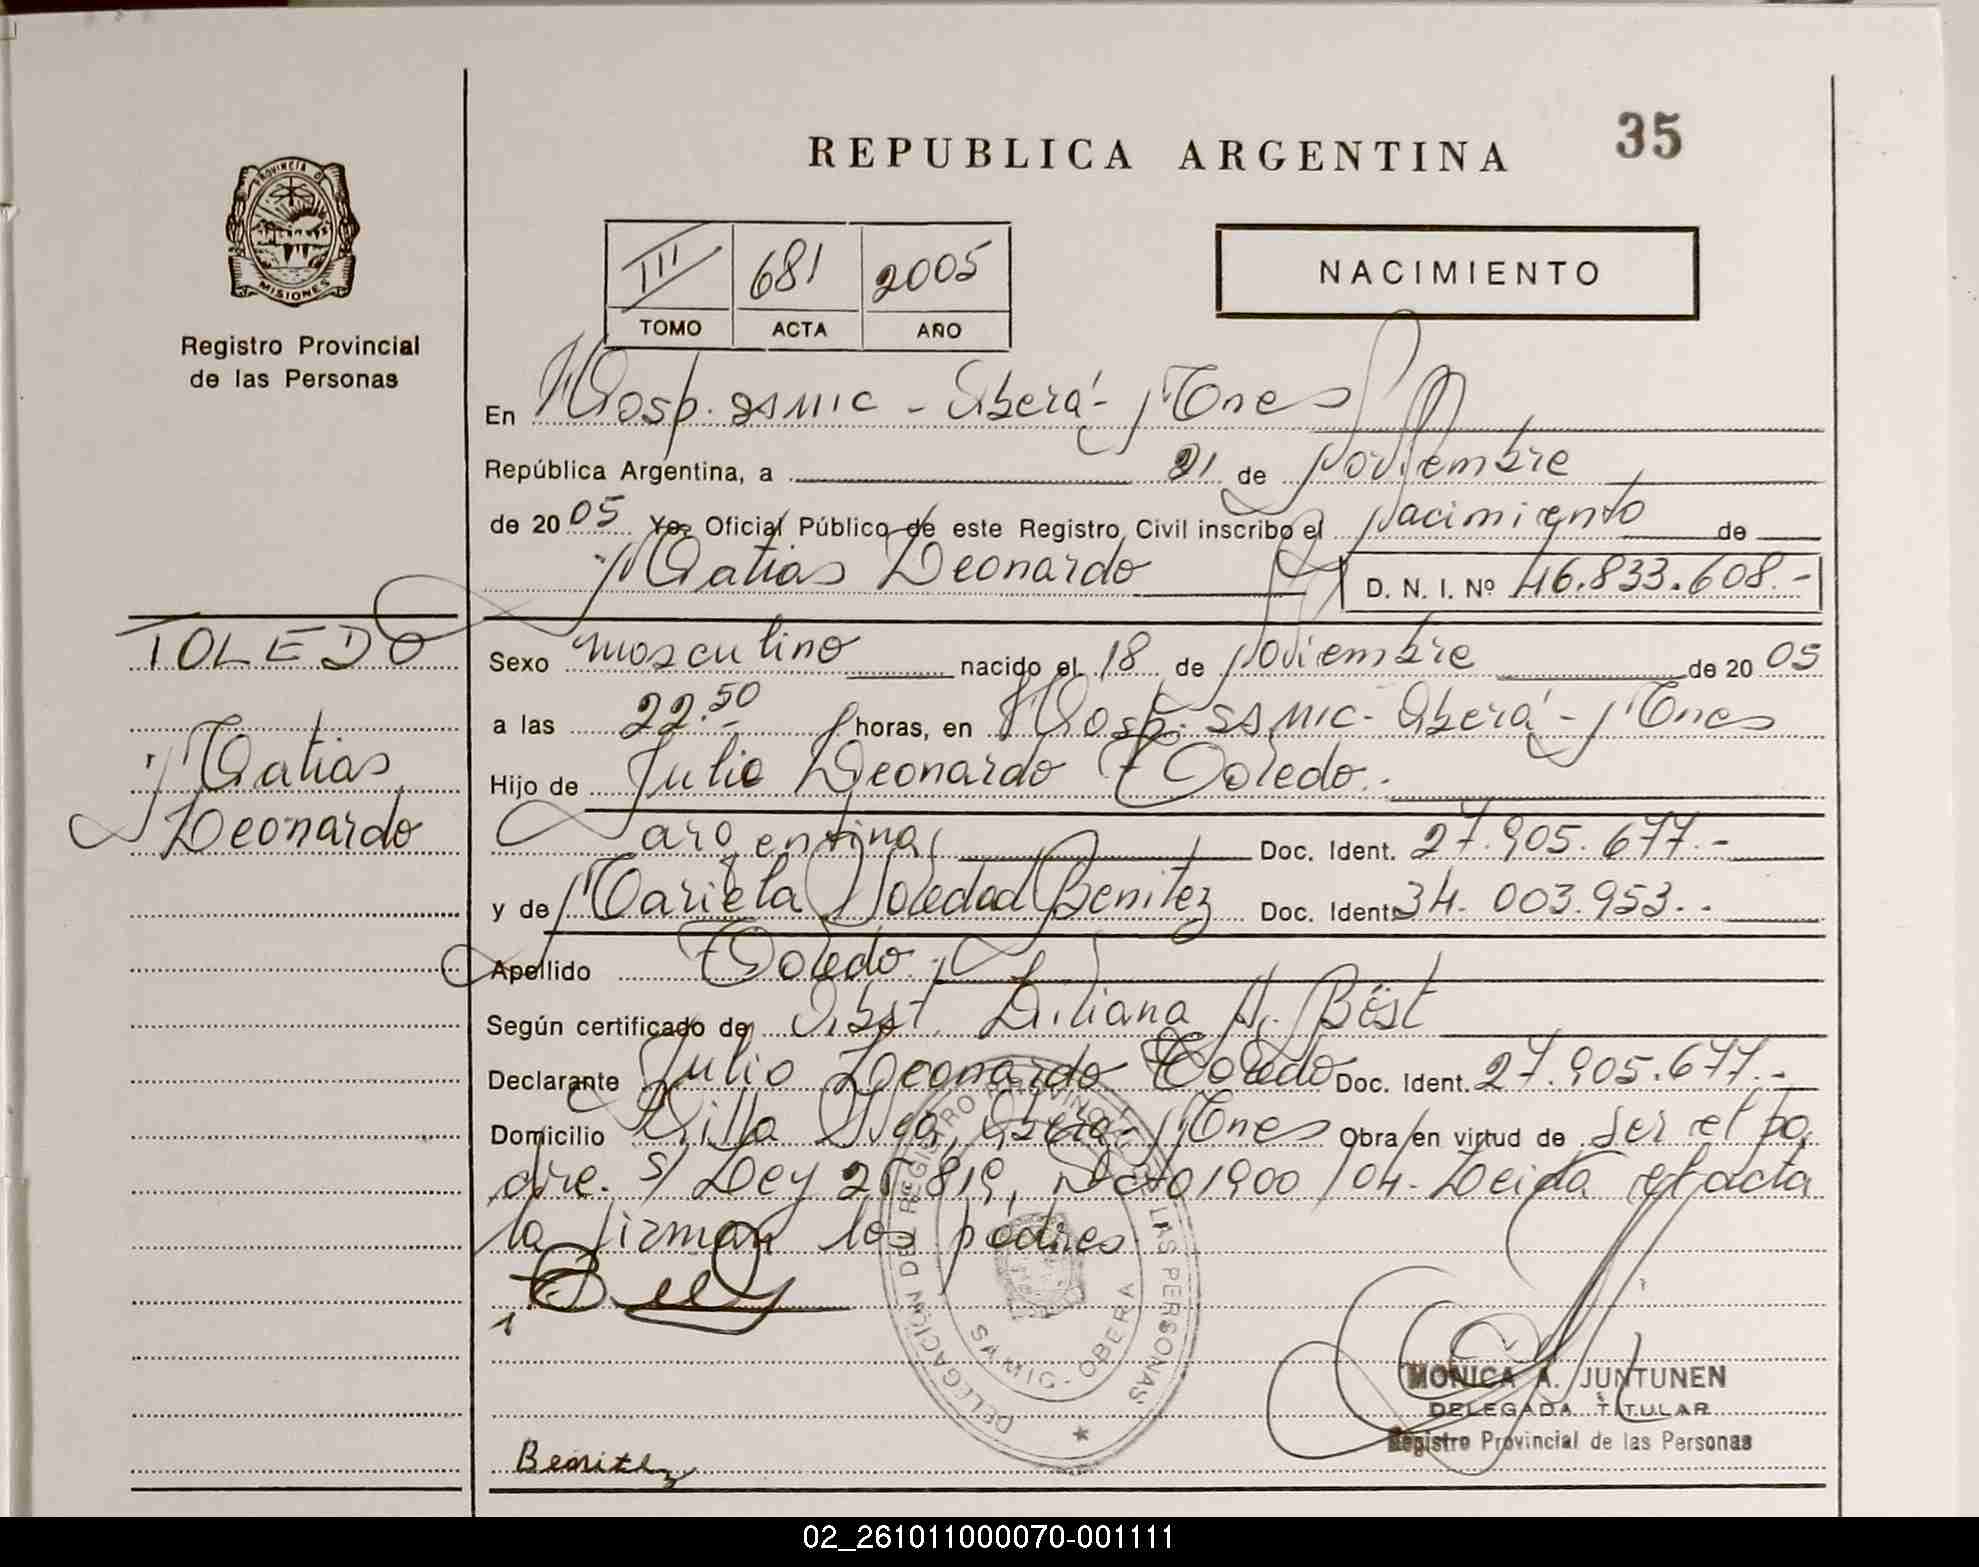 35
REPUBLICA ARGENTINA
PROVINCIA DE
MISIONES
Registro Provincial
de las Personas
III 681 2005
TOMO ACTA AÑO
NACIMIENTO
En Hosp. SAMIC - Oberá - Mnes
República Argentina, a 21 de Noviembre
de 2005 Yo, Oficial Público de este Registro Civil inscribo el Nacimiento de
Matias Leonardo D. N. I. Nº 46.833.608.-
TOLEDO
Matias
Leonardo
Sexo masculino nacido el 18 de Noviembre de 2005
a las 22.50 horas, en Hosp. SAMIC - Oberá - Mnes
Hijo de Julio Leonardo Toledo.
argentina Doc. Ident. 27.905.677.-
y de Mariela Soledad Benitez Doc. Ident. 34.003.953.-
Apellido Toledo.
Según certificado de Obst. Liliana A. Böst
Declarante Julio Leonardo Toledo Doc. Ident. 27.905.677.-
Domicilio Villa Oberá - Mnes Obra en virtud de ser el pa
dre. s/ Ley 25.819, Dcto 1900/04. Leida el acta
la firman los padres
DELEGACION DEL REGISTRO PROVINCIAL DE LAS PERSONAS
SAMIC - OBERA
MONICA A. JUNTUNEN
DELEGADA TITULAR
Registro Provincial de las Personas
Benitez
02_261011000070-001111